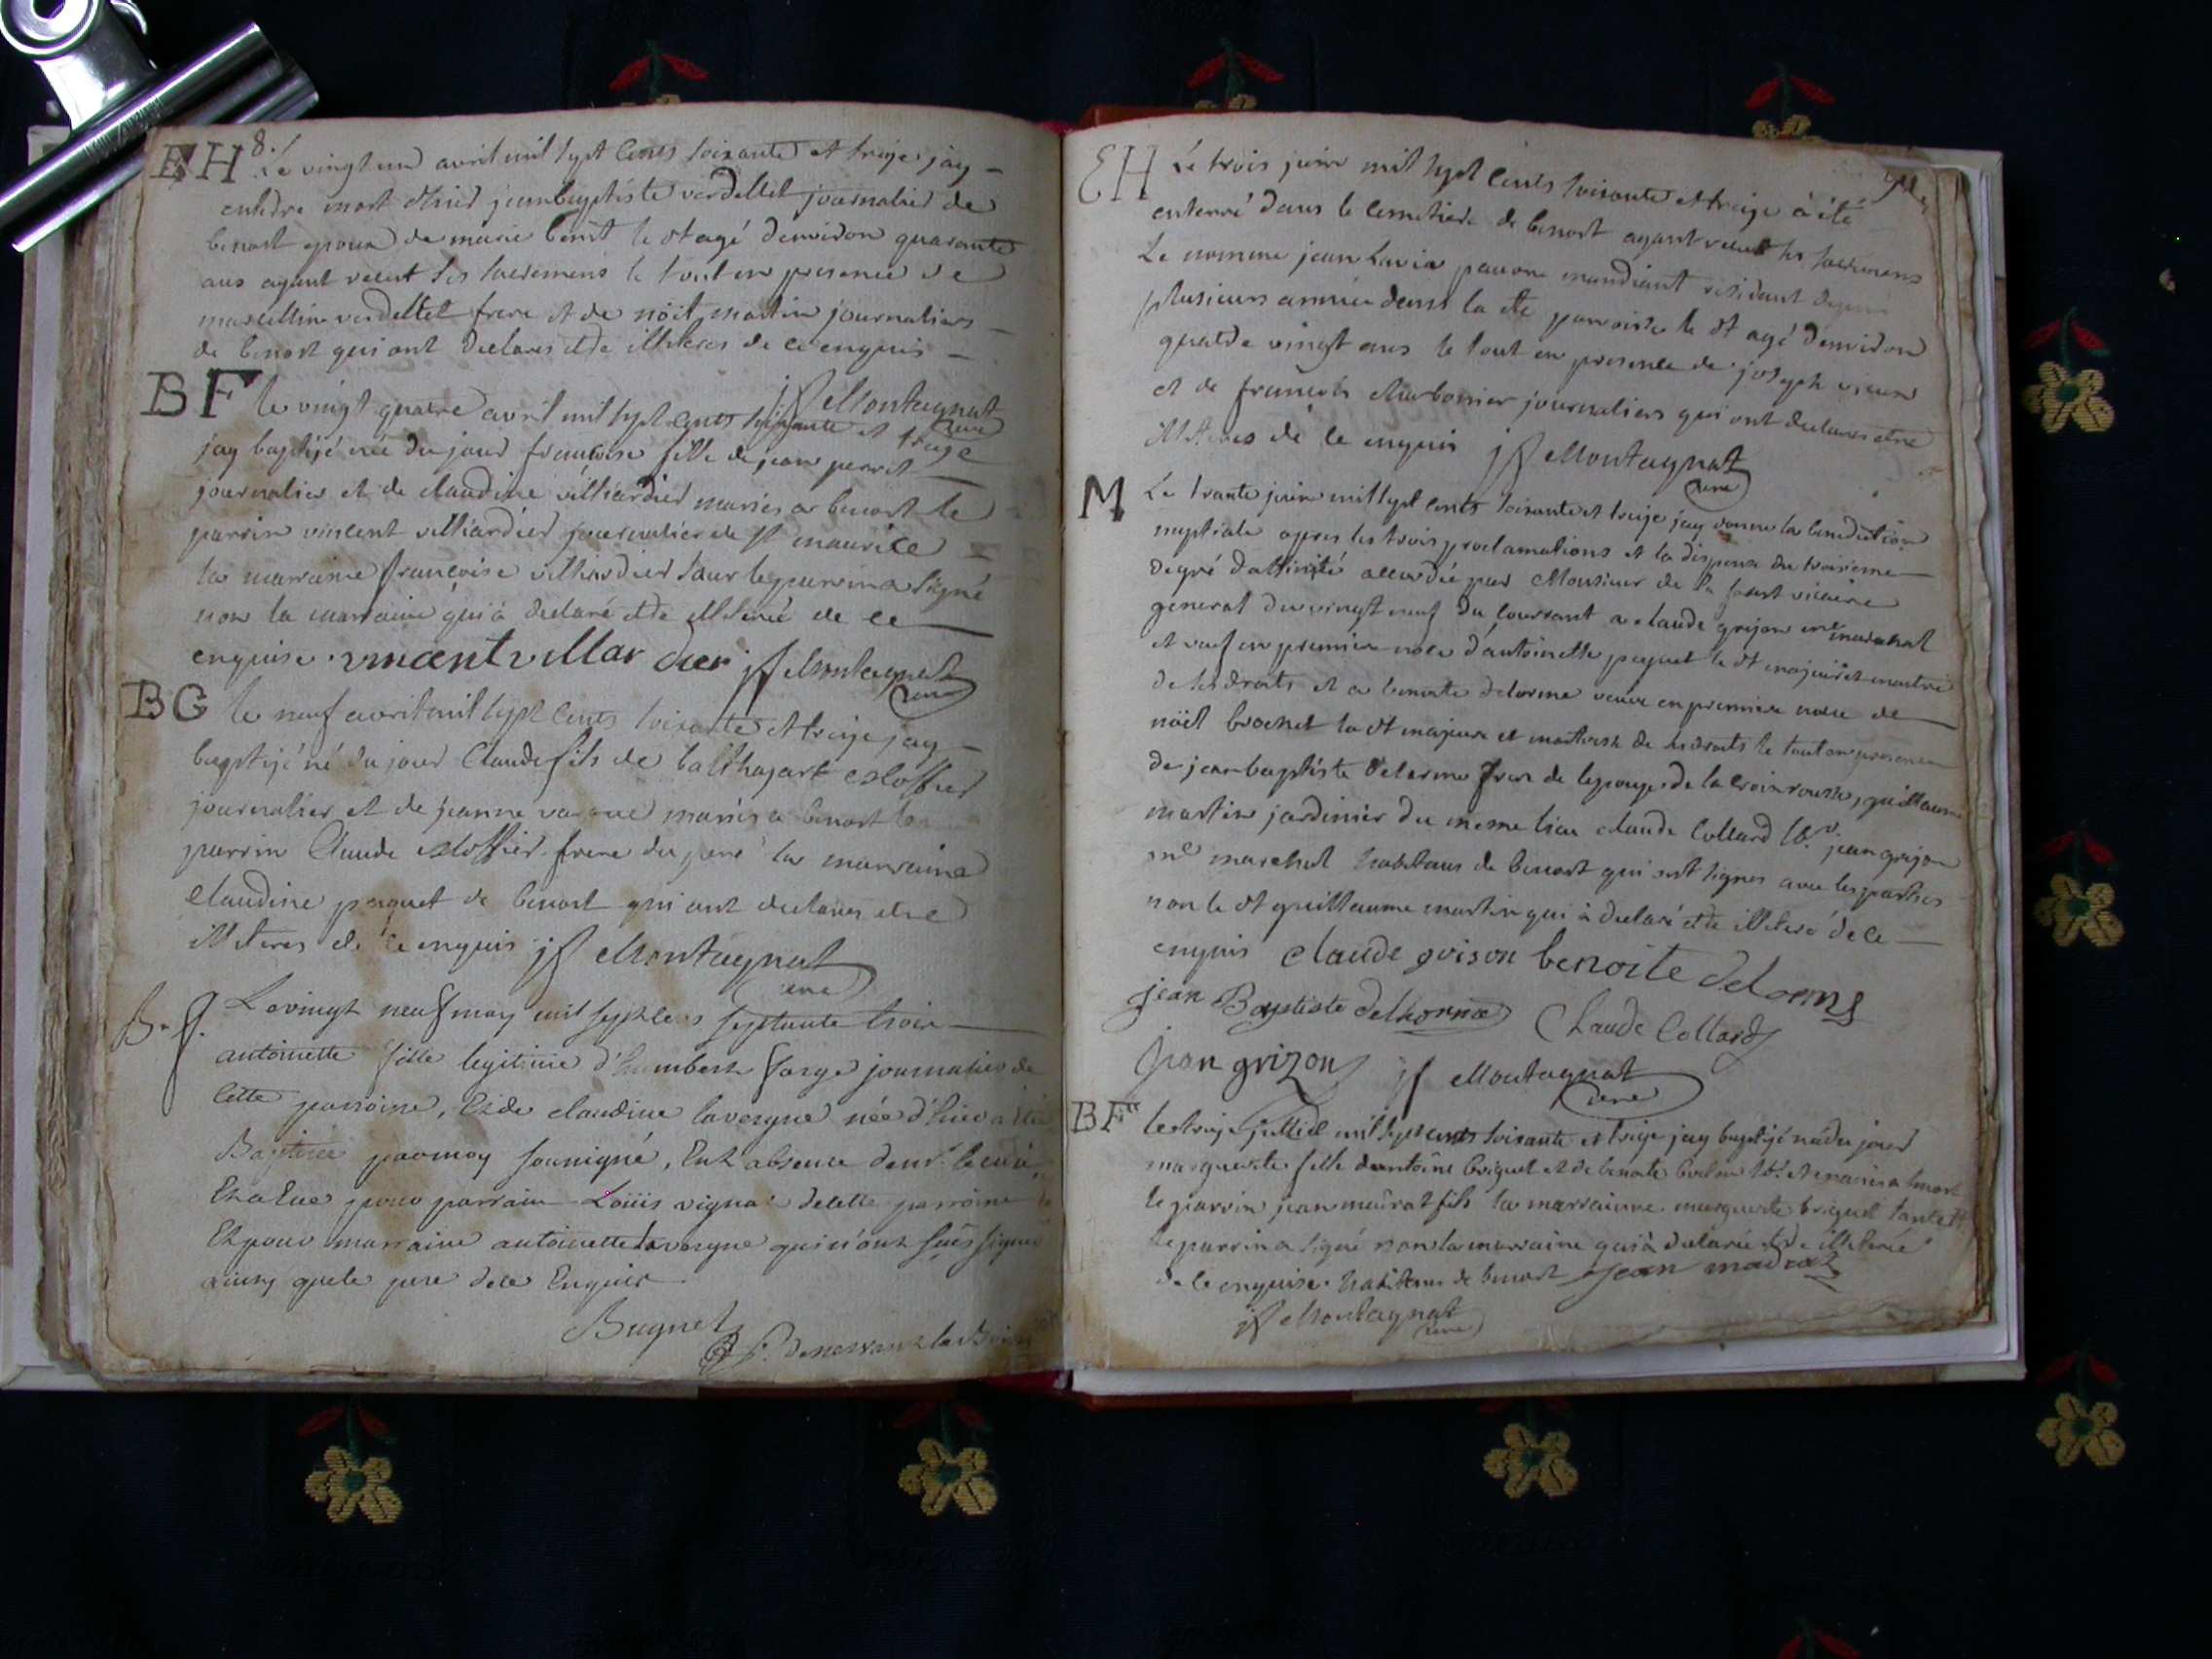 EH 8. Le vingt un avril mil sept cents soixante et treize jay
enterre mort d'hier jean baptiste verdellet journalier de
benost epoux de marie benit le dt agé d'environ quarante
ans ayant recut les sacremens le tout en presence de
marcellin verdellet frere et de nöel martin journaliers
de benost qui ont declarés etre illiteres de ce enquis
jf Montagnat
curé
BF le vingt quatre avril mil sept cents soixante et treize
jay baptizé née du jour francoise fille de jean perret
journalier et de claudine villiardier mariés a benost le
parrin vincent villiardier journalier de st maurice
la marraine francoise villiardier le parrin a signé
non la marraine qui à declaré etre illiteré de ce
enquise. vincent villar dier jf Montagnat
curé
BG le neuf avril mil sept cents soixante et treize jay
baptizé né du jour Claude fils de balthazart
journalier et de jeanne mariés a benost le
parrin Claude frere du pere la marraine
claudine paquet de benost qui ont declarés etre
illiteres de ce enquis jf Montagnat
curé
B. f. Le vingt neuf may mil sept cens septante trois
antoinette fille legitime d'humbert farge journalier de
cette parroisse, et de claudine lavergne née d'hier a été
Baptisée par moy soussigné, en l'absence de mr. le curé
Et a Eue pour parrain Loüis vignat de cette parroisse
Et pour marraine antoinette lavergne qui n'ont sçû signé
ainsy que le pere de ce Enquis
Bugnet
EH Le trois juin mil sept cents soixante et treize à été
enterré dans le cemetiere de benost ayant recut les sacremens
Le nomme jean Lavia pauvre mandiant residant depuis
plusieurs année dans la dte parroisse le dt agé d'environ
quatre vingt ans le tout en presence de joseph vieux
et de francois charbonier journaliers qui ont declarés etre
illiteres de ce enquis jf Montagnat
curé
M Le trante juin mil sept cents soixante et treize jay donne la benediction
nuptiale apres les trois proclamations et la dispense du troisieme
degré d'affinité accordée par Monsieur de la vicaire
general du vingt neuf du courrant a claude grizon me marechal
et veuf en premiere noce d'antoinette paquet le dt majeur et maitre
de ses droits et a benoite delorme veuve en premiere noce de
nöel brochet la dt majeure et maitresse de ses droits le tout en presence
de jean baptiste delorme frere de lepouse de la croix rousse, guillaume
martin jardinier du meme lieu claude Collard lbr. jean grizon
me marechal habitans de benost qui ont signes avec les parties
non le dt guillaume martin qui à declaré etre illiteré de ce
enquis claude grison benoite delorme
jean Baptiste delhorme Claude Collard
jean grizon jf Montagnat
curé
BF le treize juilliet mil sept cents soixante et treize jay baptizé née du jour
marguerite fille d'antoine briguet et de benoite lbr. et mariés a benost
le parrin jean meürat fils la marrainne marguerite briguet tante
le parrin a signé non la marraine qui à declarée etre illiterée
de ce enquise. habitans de benost jean
jf Montagnat
curé